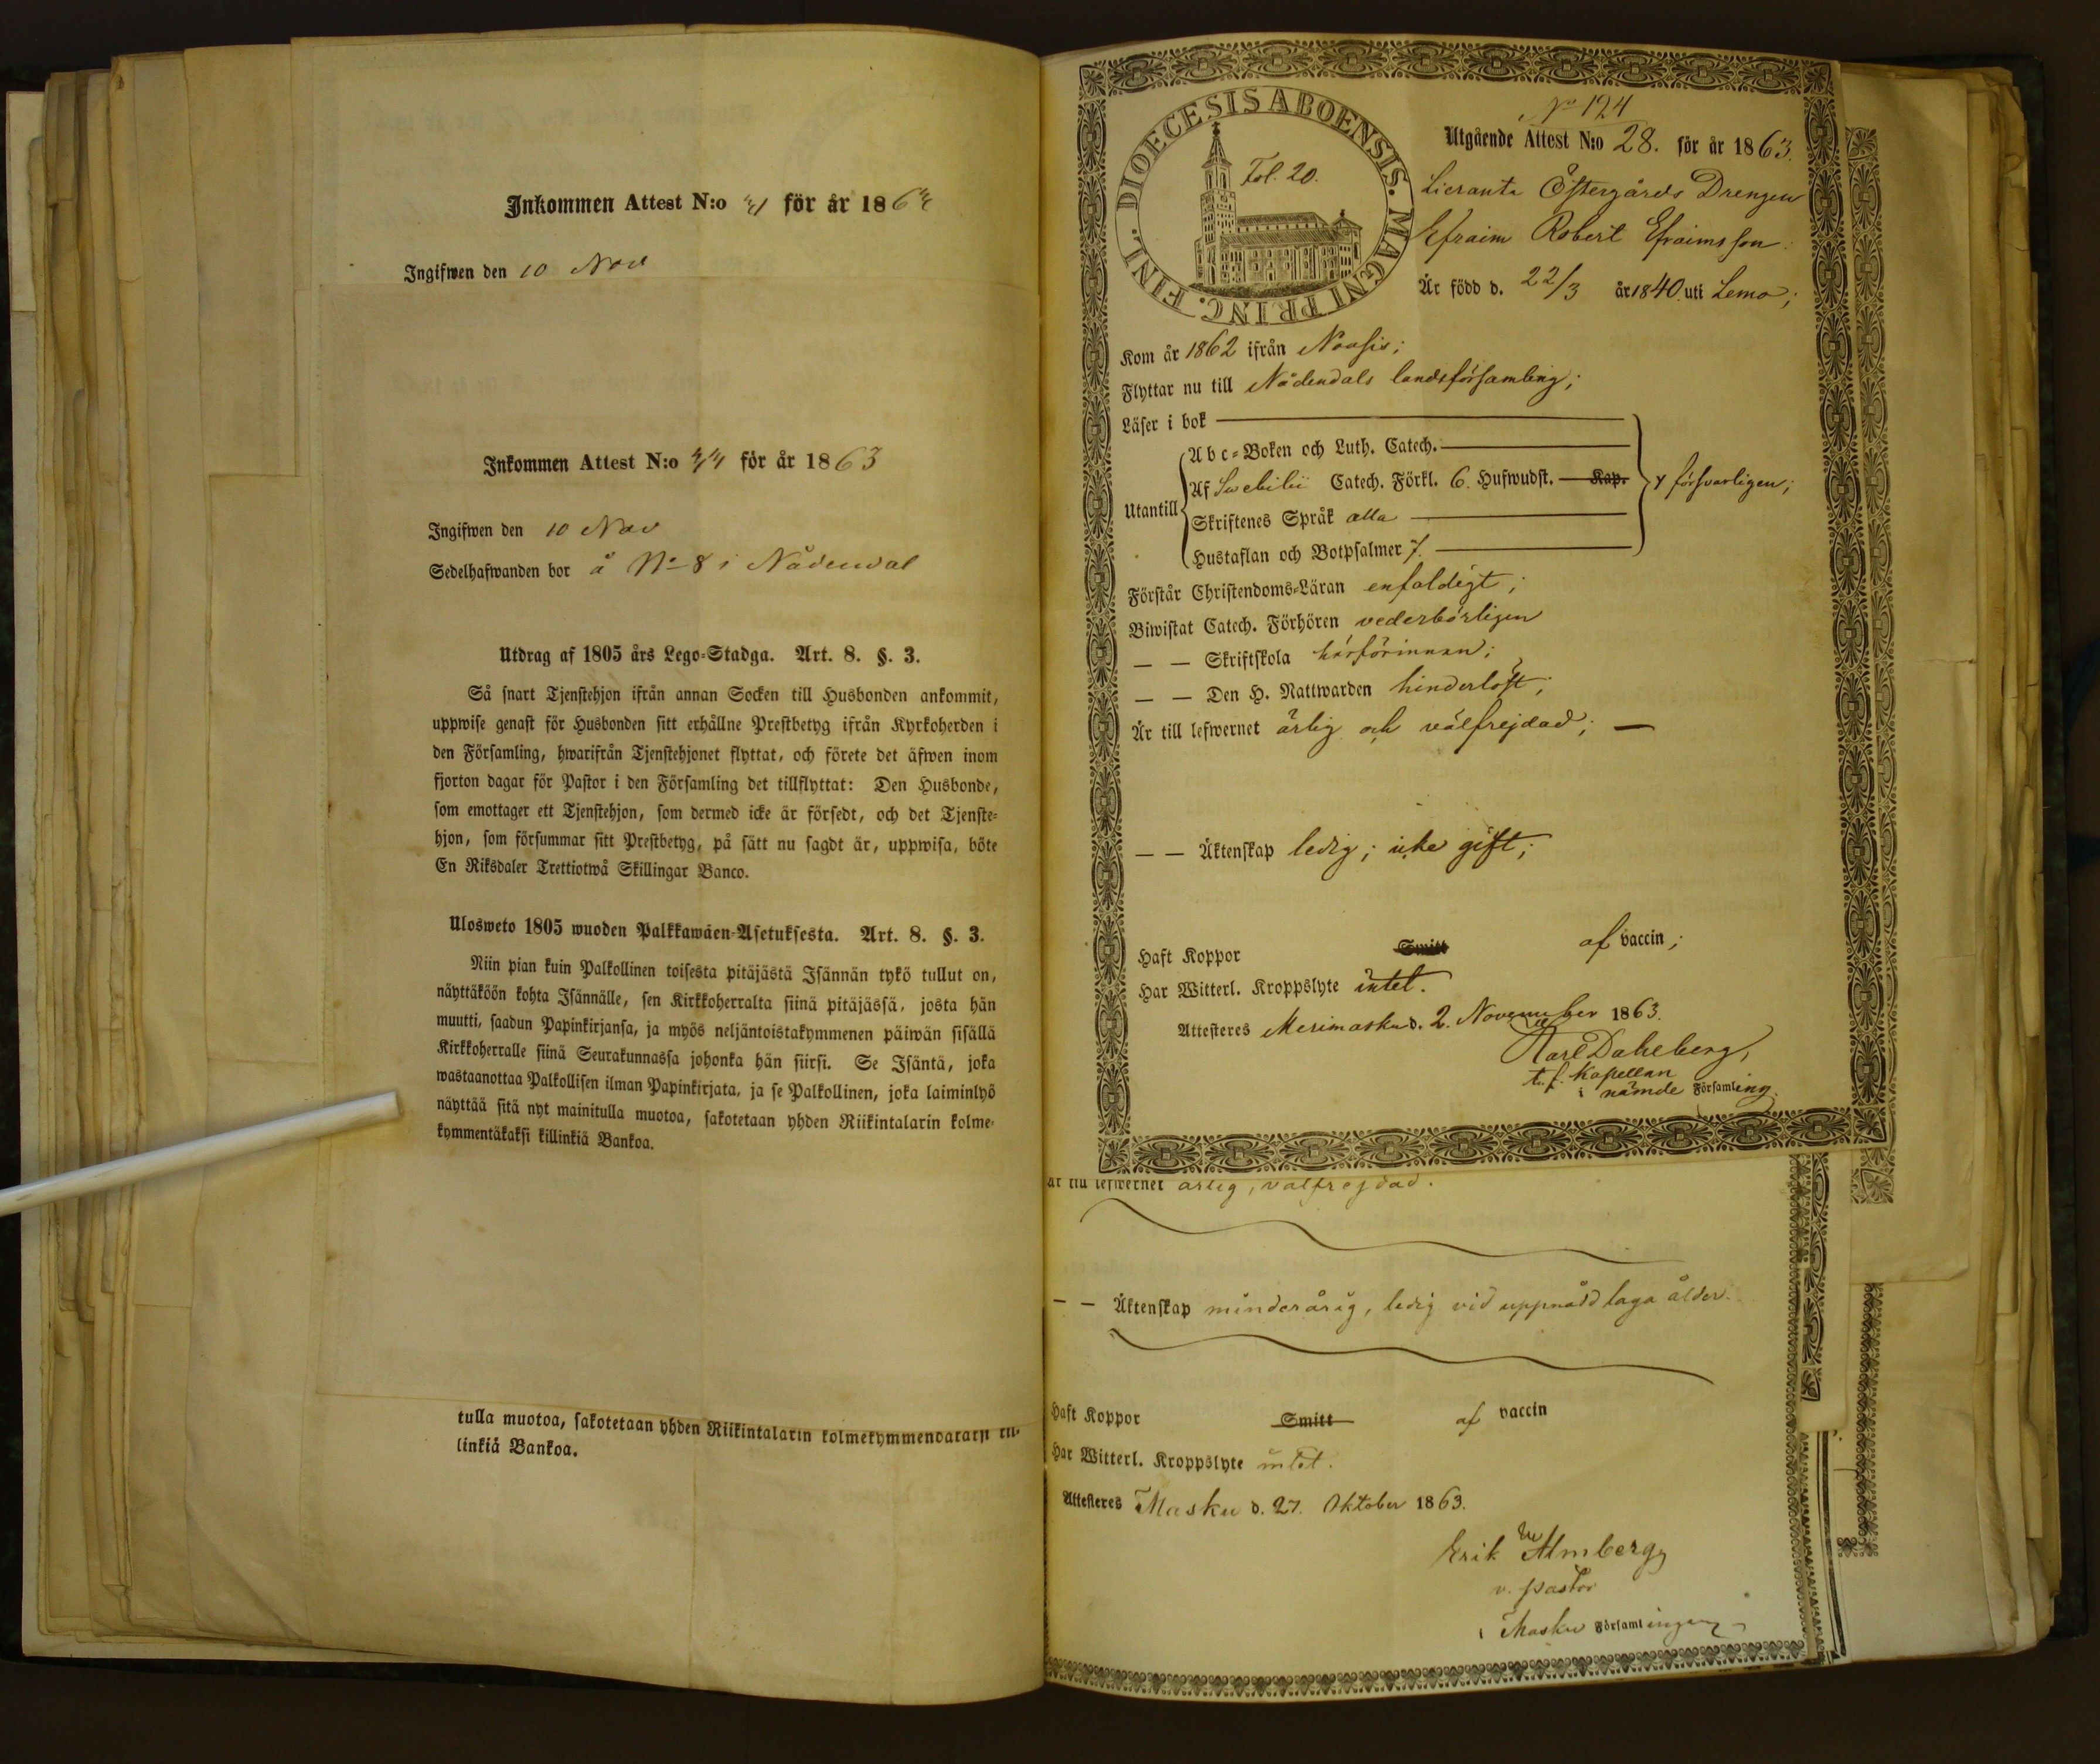 Inkommen Attest N:o för år 186
Ingifwen den 10 Nov
Inkommen Attest N:o för år 1863
Ingifwen den 10 Nov
Sedelhafwanden bor å No 8 i Nådendal
Utdrag af 1805 års Lego-Stadga. Art. 8. §. 3.
Så snart Tjenstehjon ifrån annan Socken till Husbonden ankommit,
uppwise genast för Husbonden sitt erhållne Prestbetyg ifrån Kyrkoherden i
den Församling, hwarifrån Tjenstehjonet flyttat, och förete det äfwen inom
fjorton dagar för Pastor i den Församling det tillflyttat: Den Husbonde,
som emottager ett Tjenstehjon, som dermed icke är försedt, och det Tjenste-
hjon, som försummar sitt Prestbetyg, på sätt nu sagdt är, uppwisa, böte
En Riksdaler Trettiotwå Skillingar Banco.
Ulosweto 1805 wuoden Palkkawäen-Asetuksesta. Art. 8. §. 3.
Niin pian kuin Palkollinen toisesta pitäjästä Isännän tykö tullut on,
näyttäköön kohta Isännälle, sen Kirkkoherralta siinä pitäjässä, josta hän
muutti, saadun Papinkirjansa, ja myös neljäntoistakymmenen päiwän sisällä
Kirkkoherralle siinä Seurakunnassa johonka hän siirsi. Se Isäntä, joka
wastaanottaa Palkollisen ilman Papinkirjata, ja se Palkollinen, joka laiminlyö
näyttää sitä nyt mainitulla muotoa, sakotetaan yhden Riikintalarin kolme-
kymmentäkaksi killinkiä Bankoa.
tulla muotoa, sakotetaan yhden Riikintalarin
linkiä Bankoa.
DIOECESIS ABOENSIS. MAGNI PRINC. FINL.
Fol. 20.
No 124
Utgående Attest N:o 28. för år 1863.
Lieranta Östergårds Drengen
Efraim Robert Efraimsson.
Är född d. 22/3 år 1840 uti Lemo;
Kom år 1862 ifrån Nousis;
Flyttar nu till Nådendals landsförsamling;
Läser i bok
Abc-Boken och Luth. Catech.
Utantill Af Swebilii Catech. Förkl. 6. Hufwudst. Kap. försvarligen;
Skriftenes Språk alla
Hustaflan och Botpsalmer 7.
Förstår Christendoms-Läran enfaldigt;
Biwistat Catech. Förhören vederbörligen
— — Skriftskola härförinnan;
— — Den H. Nattwarden hinderlöst;
Är till lefwernet ärlig och välfrejdad; —
— — Äktenskap ledig; icke gift;
Haft Koppor Smitt af vaccin;
Har Witterl. Kroppslyte intet.
Attesteres Merimasku d. 2. November 1863.
Karl Dahlberg,
t. f. Kapellan
i nämde Församling.
är till lefwernet ärlig, välfrejdad.
— — Äktenskap minderårig, ledig vid uppnådd laga ålder.
Haft Koppor Smitt af vaccin
Har Witterl. Kroppslyte intet.
Attesteres Masku d. 27. Oktober 1863.
Erik Wm Almberg,
v. pastor
i Masku Församlingen